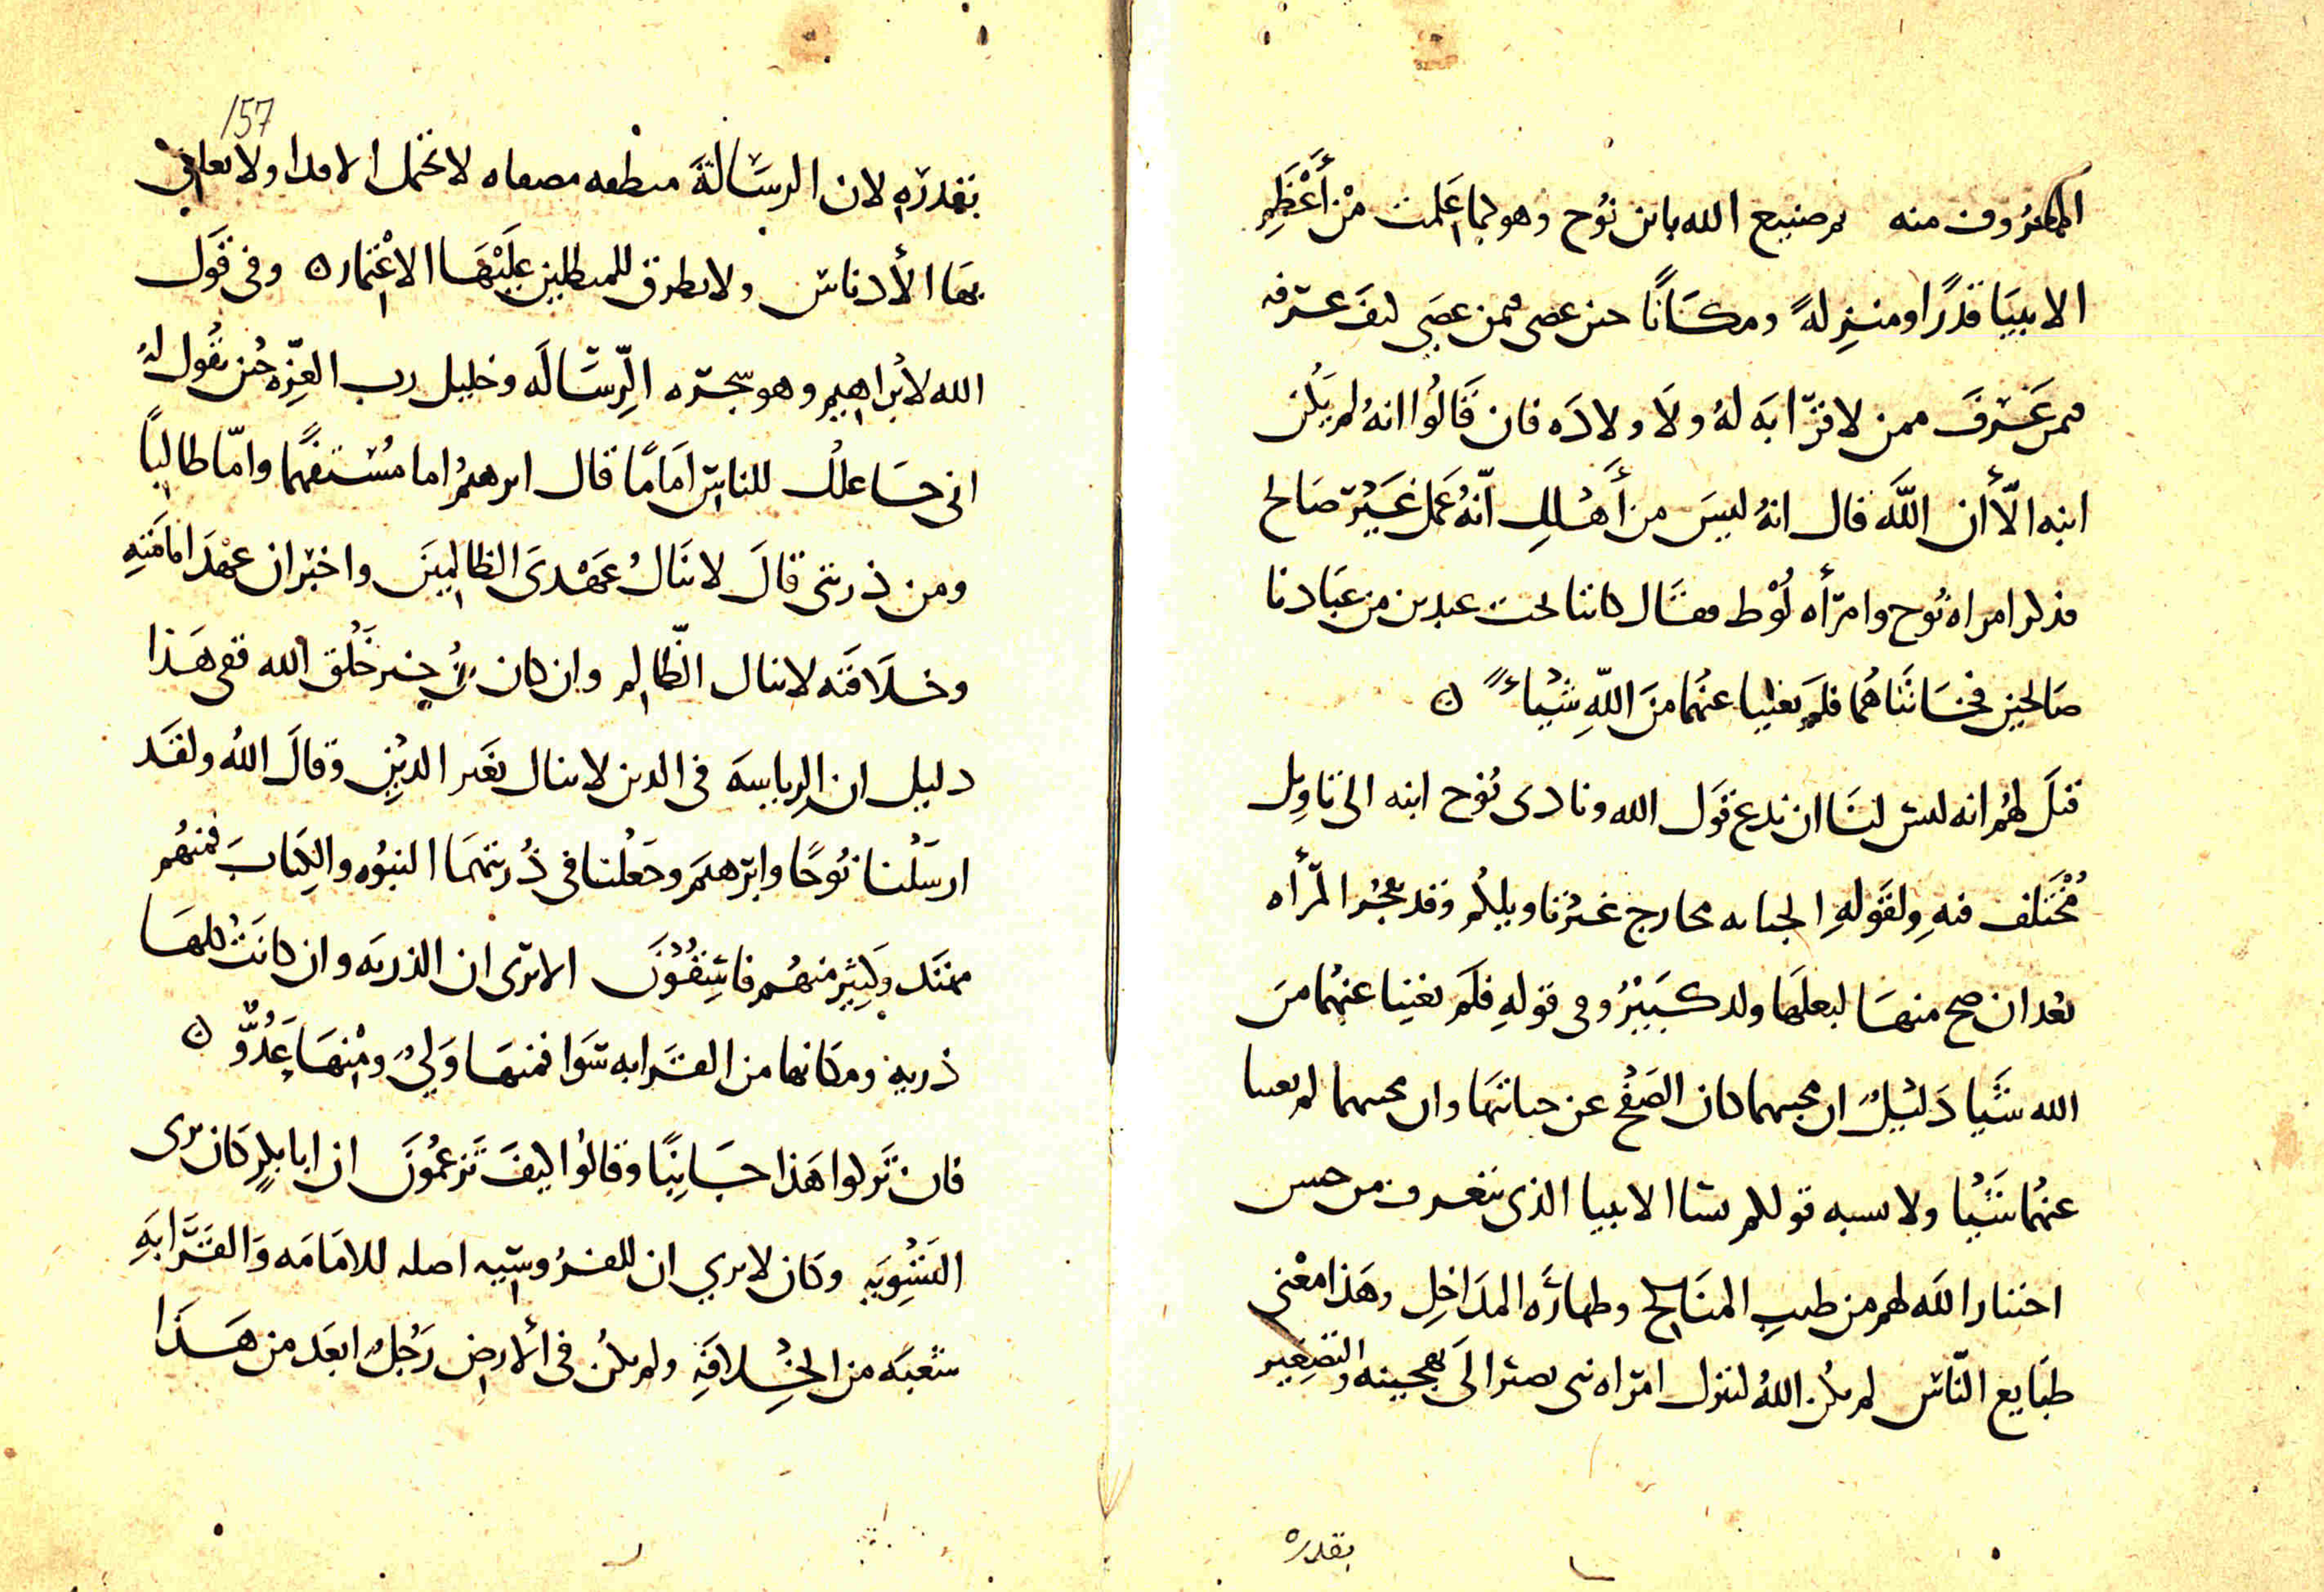 المعروف منه من صنيع الله بابن نوح وهو لما علمت من أعظم
الانبيا قدرًا ومنزلةً ومكانًا حين عصى فيمن عصى كيف عرفه
فيمن غرق ممن لا قرابه لهُ ولا ولاده فان قالوا انهُ لم يكن
ابنه الّا أن اللَّه قال انهُ ليس من أهلك انّهُ عمل غير صالح
فذكر امراة نوح وامرأه لوط فقال كانتا تحت عبدين من عبادنا
صالحين فخانتاهما فلم يغنيا عنهما من اللهِ شيئاً ن
قيل لهم انه ليس لنا ان ندع قول الله ونادى نوح ابنه الى تاويل
مُختلف فيهِ ولقولهِ الخيانه مخارج غير تاويلكم وقد تفجُر المرأه
بعد ان صح منها لبعلها ولد كبير وفى قولهِ فلم يغنيا عنهما من
الله شيا دليلٌ ان محبهما كان الصفح عن خيانتها وان محبهما لم يغنيا
عنهما شيُا ولا يشبه قولكم نسا الانبيا الذى نعرف من حسن
اختيار الله لهم من طيبِ المناكح وطهارَه المداخِل وهذا معنى
طبايع الناس لم يكن اللهُ لينزل امراه نبى يصير الى تهجينه والتصغير
بقدره
157
بقدره لان الرسالةَ منظفه مصفاه لا تحتمل الاقذا ولا تعلق
بها الأدناس ولا يطرق للمبطلين عليها الاغتمار ن وفى قَول
الله لابراهيم وهو شجره الرِّسَالَه وخليل رب العزّه حين يقول لهُ
انى جاعلك للناس اماما قال ابرهيمُ اما مُستفهمًا وامّا طالبًا
ومن ذريتى قالَ لا ينالُ عهدى الظالمينَ واخبر ان عهدَ امامَتِهِ
وخلافته لا ينال الظّالم وان كان من خير خَلق الله ففى هذا
دليل ان الرياسه فى الدين لا تنال بغير الدين وقالَ اللهُ ولقد
ارسلنا نُوحًا وابرهيم وجعلنا فى ذُريتهما النبوُه والكتابَ فمنهم
مهتد وكثير منهم فاسِقُونَ الا ترى ان الذريه وان كانت كلها
ذريه ومكانها من القرابه سوا فمنها وليٌ ومنها عَدُوٌّ ن
فان تركوا هذا جانِبًا وقالوا كيفَ تزعمُونَ ان ابا بكرٍ كان يرى
التسويه وكان لا يرى ان للفروسيه اصله للامامه وَالقرابَهِ
شعبَه من الخلافَهِ ولم يكن فى الأرض رَجلٌ ابعد من هذا